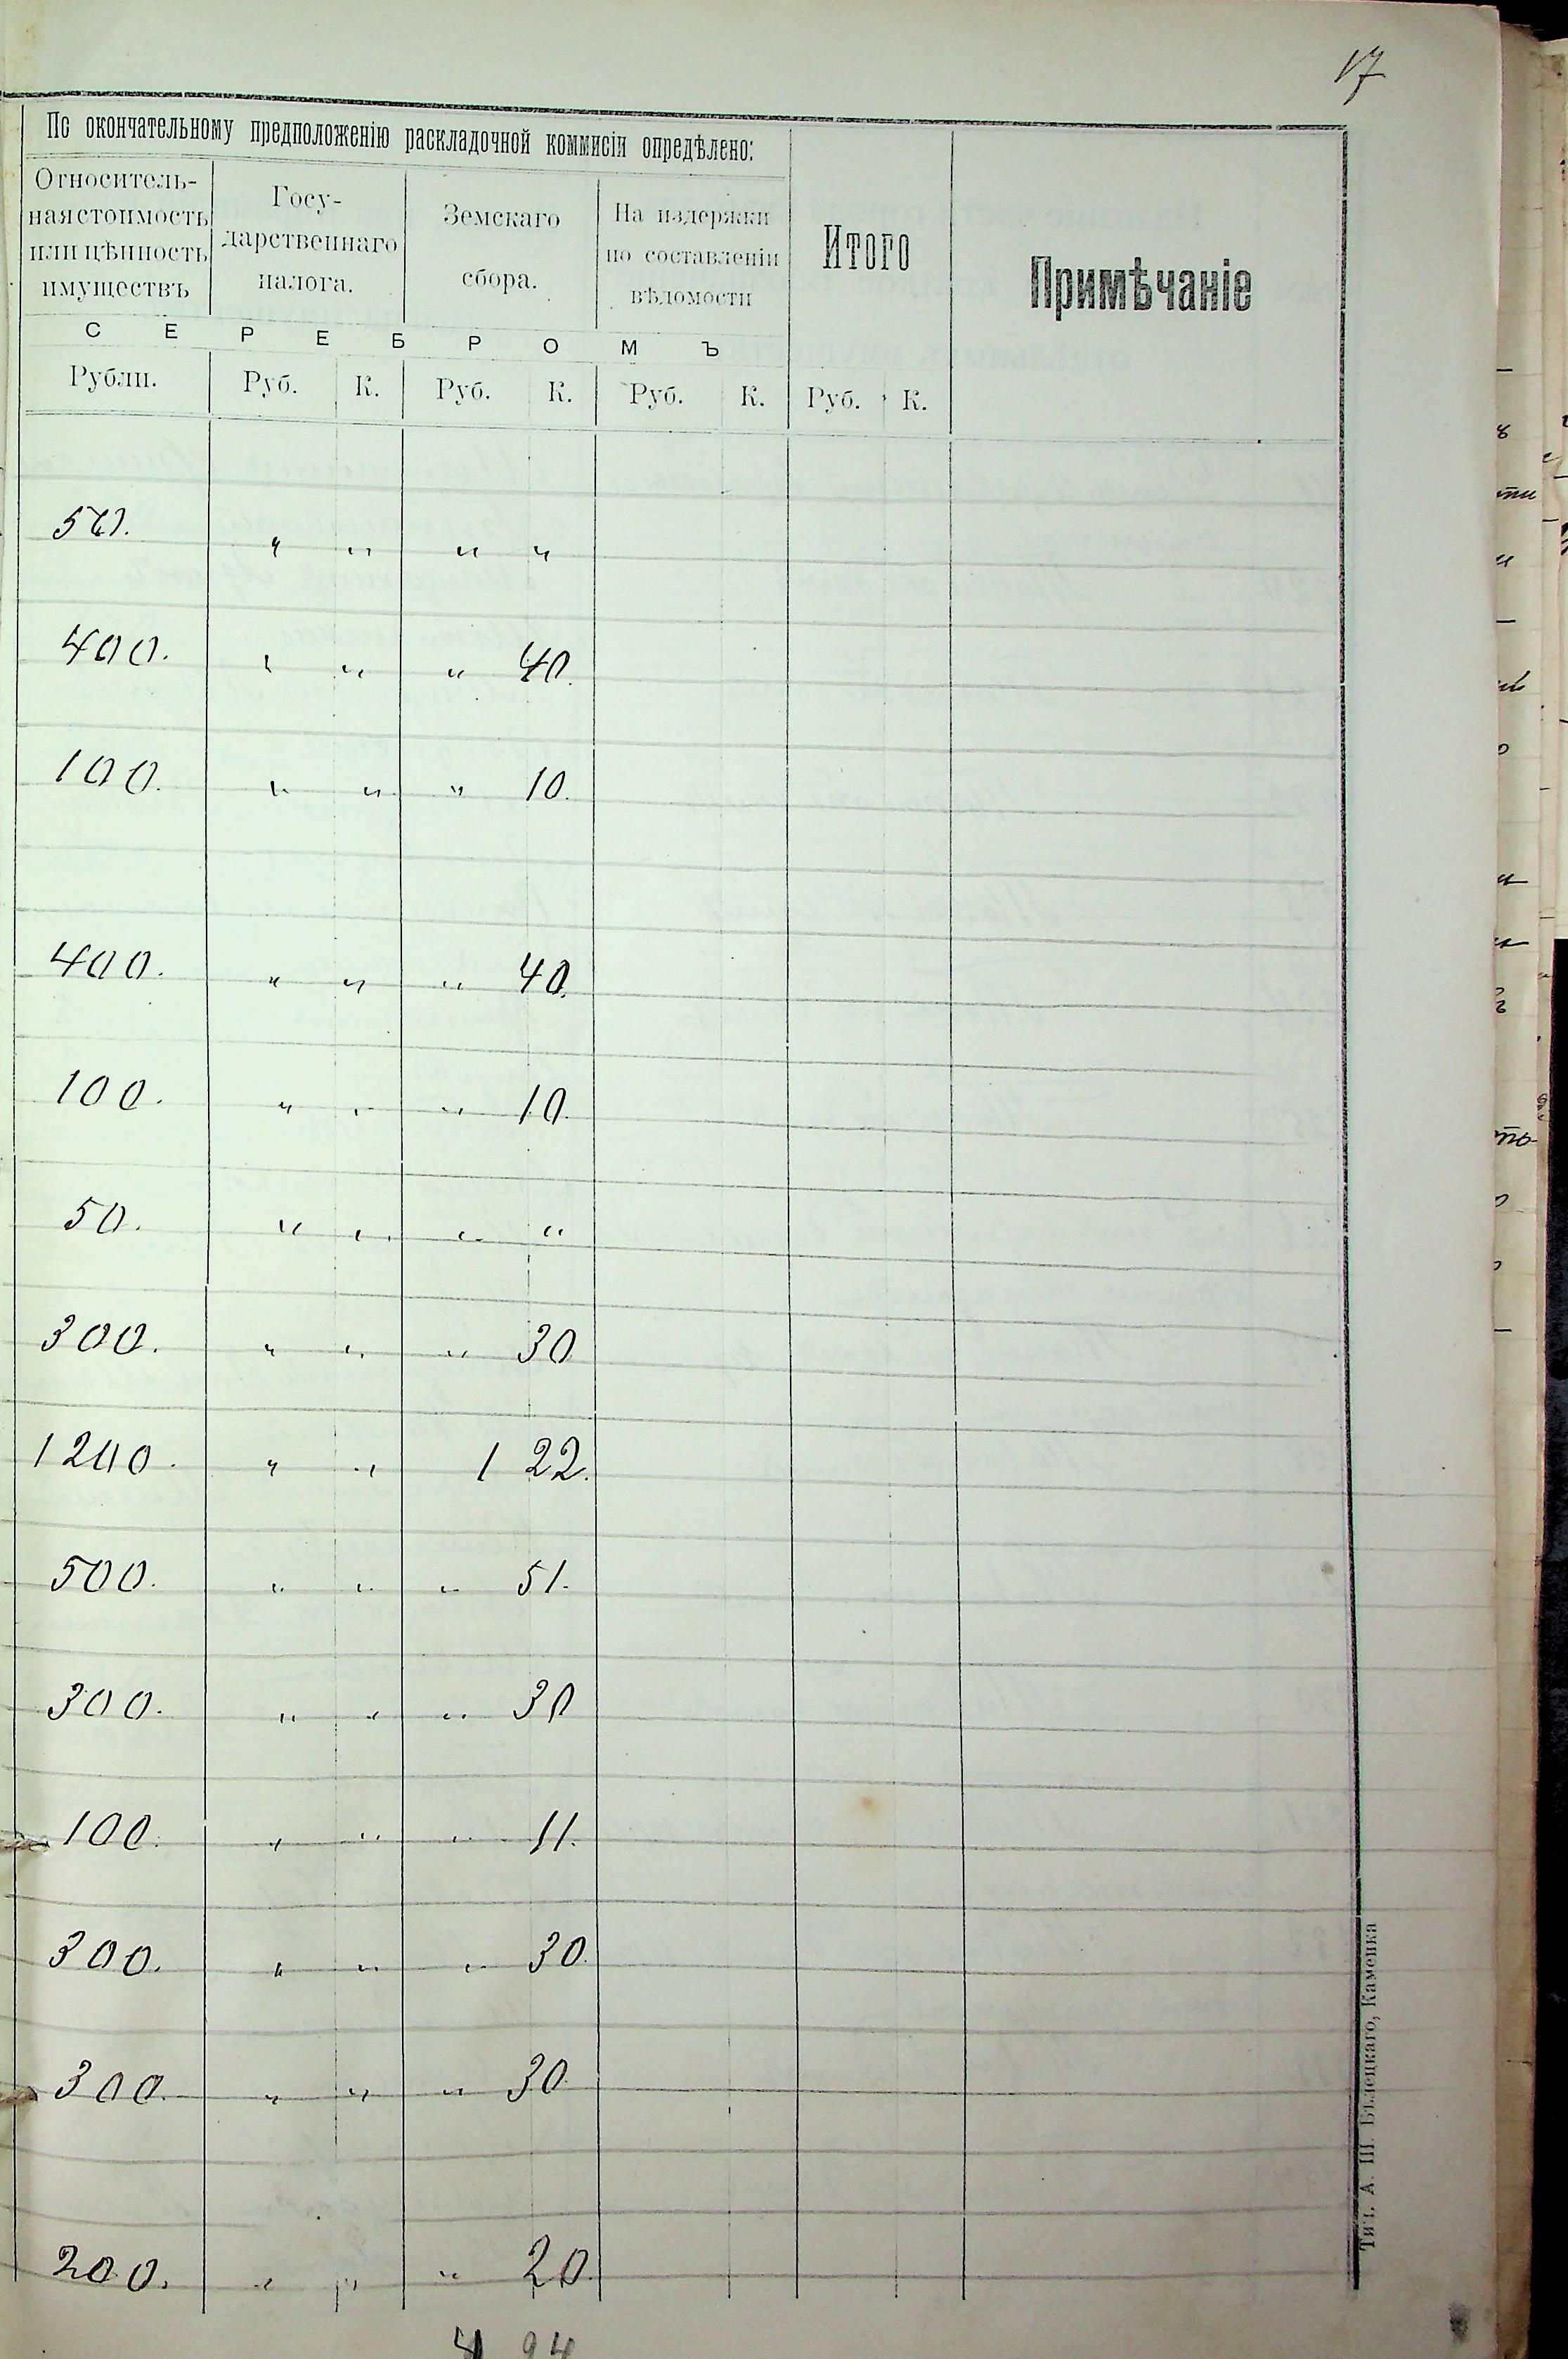 17
По окончательному предположенію раскладочной коммисіи опредѣлено:
Относитель-
ная стоимость
или цѣнность
имуществъ
Госу-
дарственнаго
налога.
Земскаго
сбора.
На издержки
по составленіи
вѣдомости
Итого
Примѣчаніе
С Е Р Е Б Р О М Ъ
Рубли. Руб. К. Руб. К. Руб. К. Руб. К.
50. " " " "
400. " " " 40.
100. " " " 10.
400. " " " 40.
100. " " " 10.
50. " " " "
300. " " " 30
1200. " " 1 22.
500. " " " 51.
300. " " " 30
100. " " " 11.
300. " " " 30.
300. " " " 30.
200. " " " 20.
94
Тип. А. Ш. Бѣлецкаго, Каменка